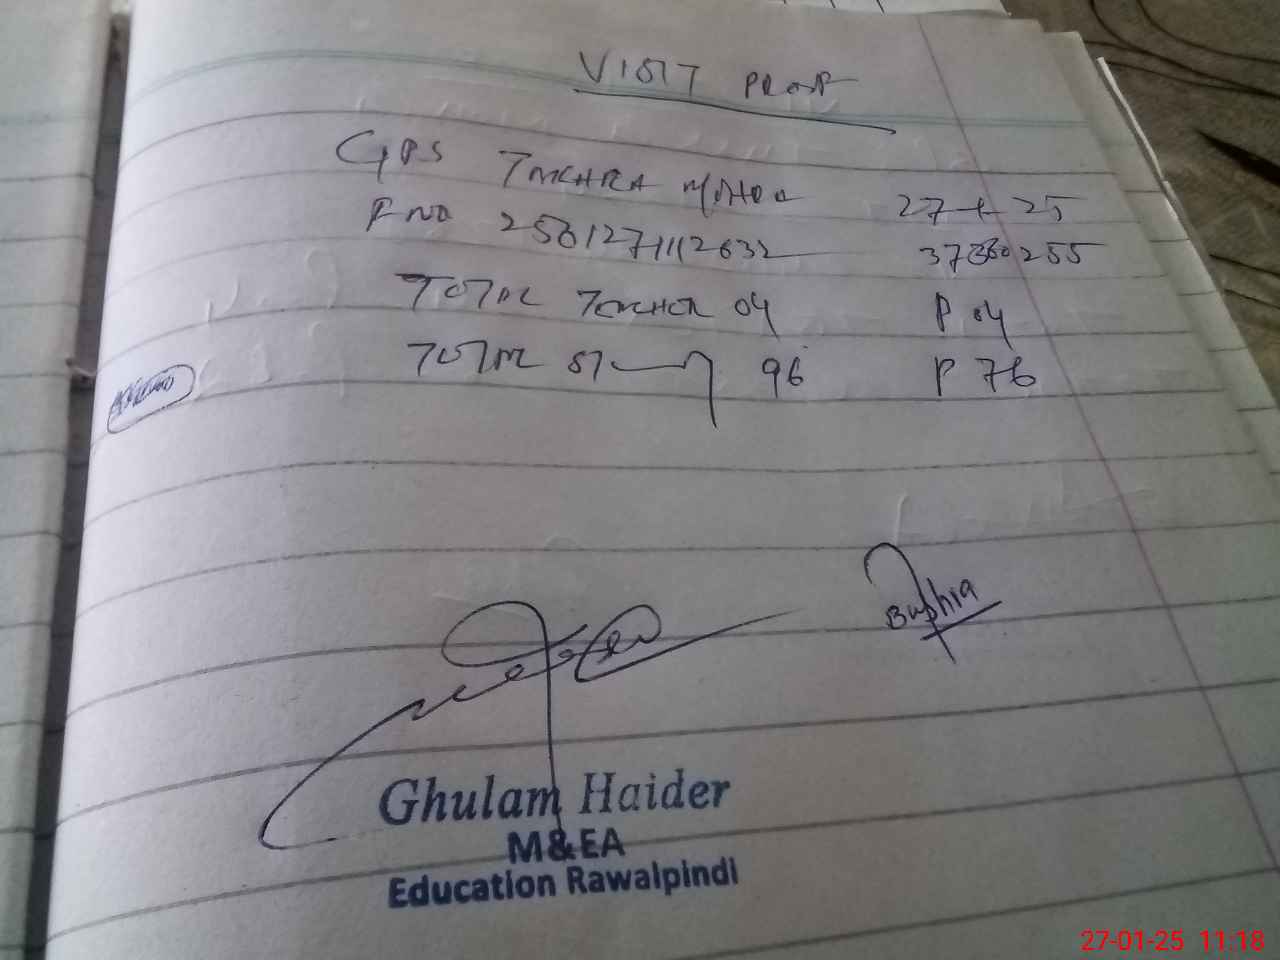 VISIT PROOF
GPS
27-1-25
P NO 2501271112632 37360255
TOTAL TEACHER 04 P 04
TOTAL ST 96 P 76
Bushra
Ghulam Haider
M&EA
Education Rawalpindi
27-01-25 11:18